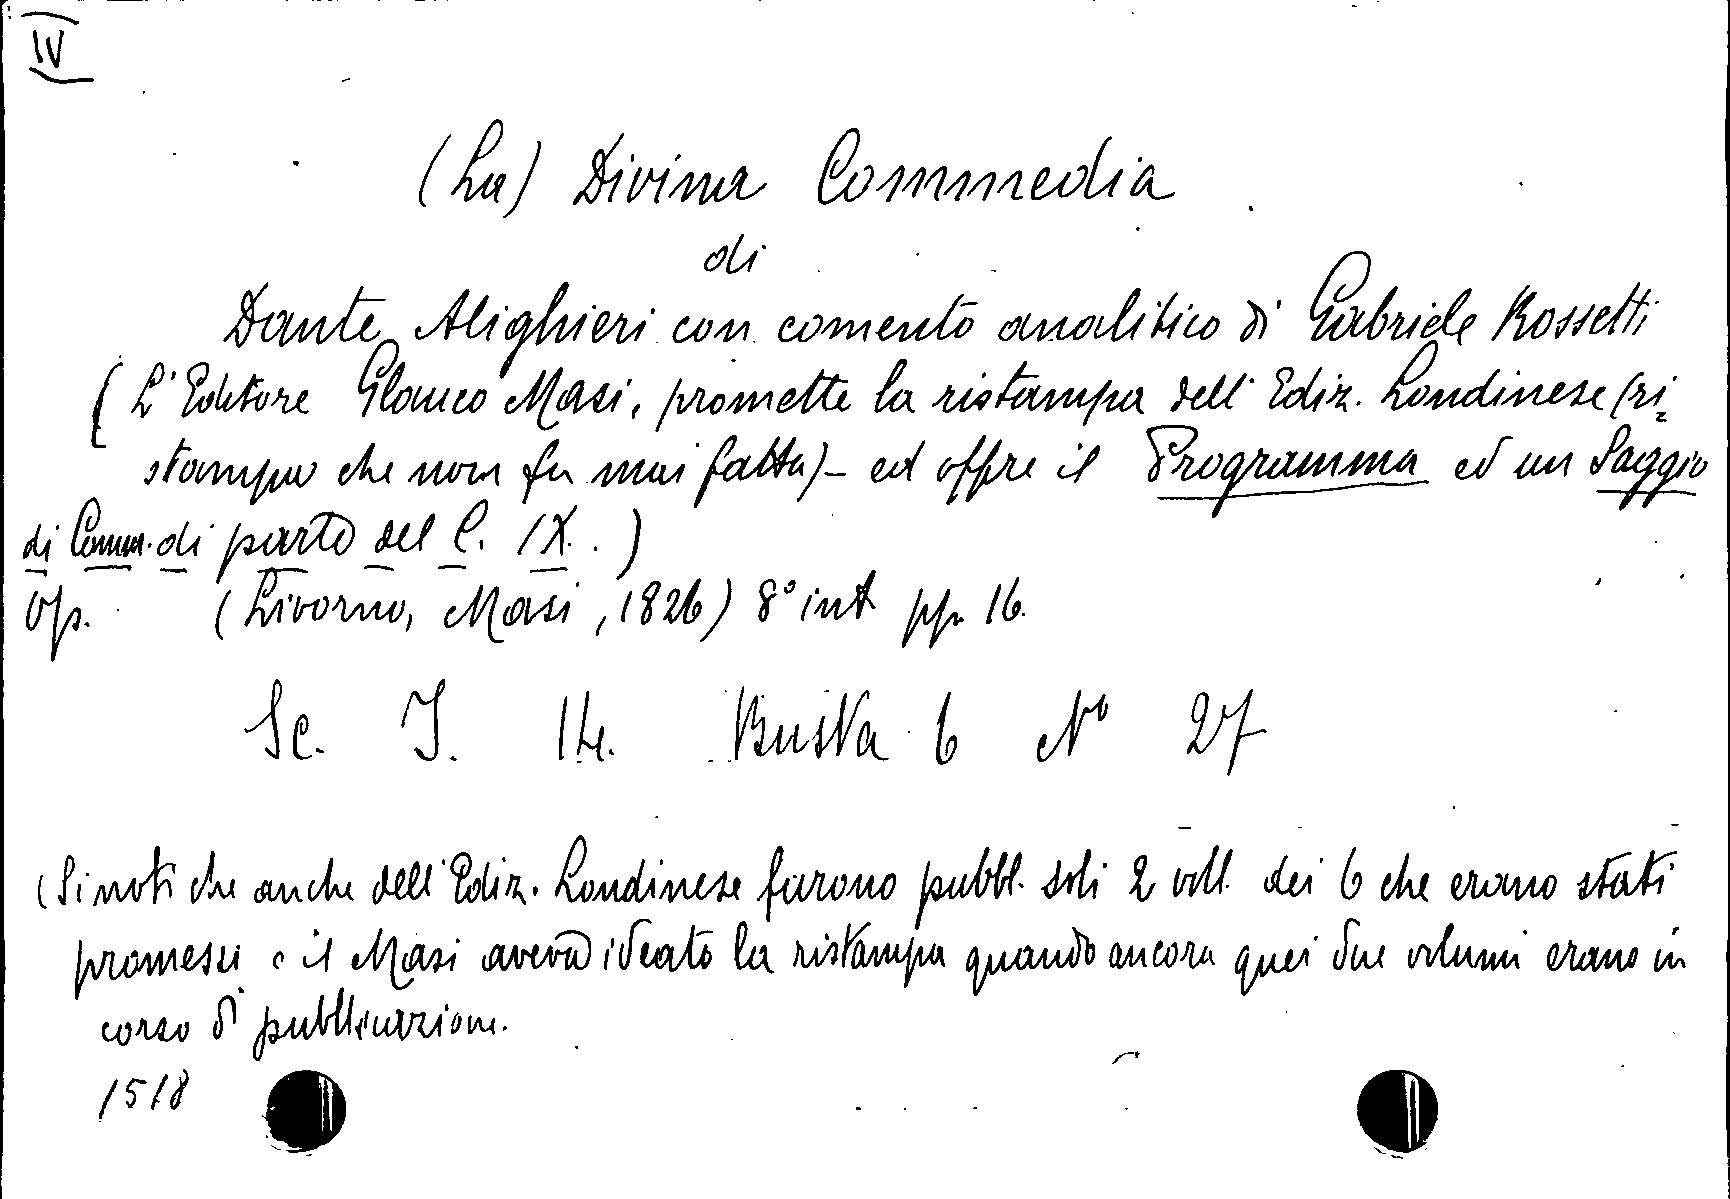 IV
(La) Divina Commedia
di
Dante Alighieri con comento analitico di Gabriele Rossetti
(L'Editore Glauco Masi, promette la ristampa dell'Ediz. Londinese (ri-
stampa che non fu mai fatta) - ed offre il Programma ed un Saggio
di Comm. di parte del C. IX.)
Op. (Livorno, Masi, 1826) 8° int pp. 16.
Sc. I. 14. Busta 6 N° 27
(Si noti che anche dell'Ediz. Londinese furono pubbl. soli 2 voll. dei 6 che erano stati
promessi e il Masi aveva ideato la ristampa quando ancora quei due volumi erano in
corso di pubblicazione.
1518